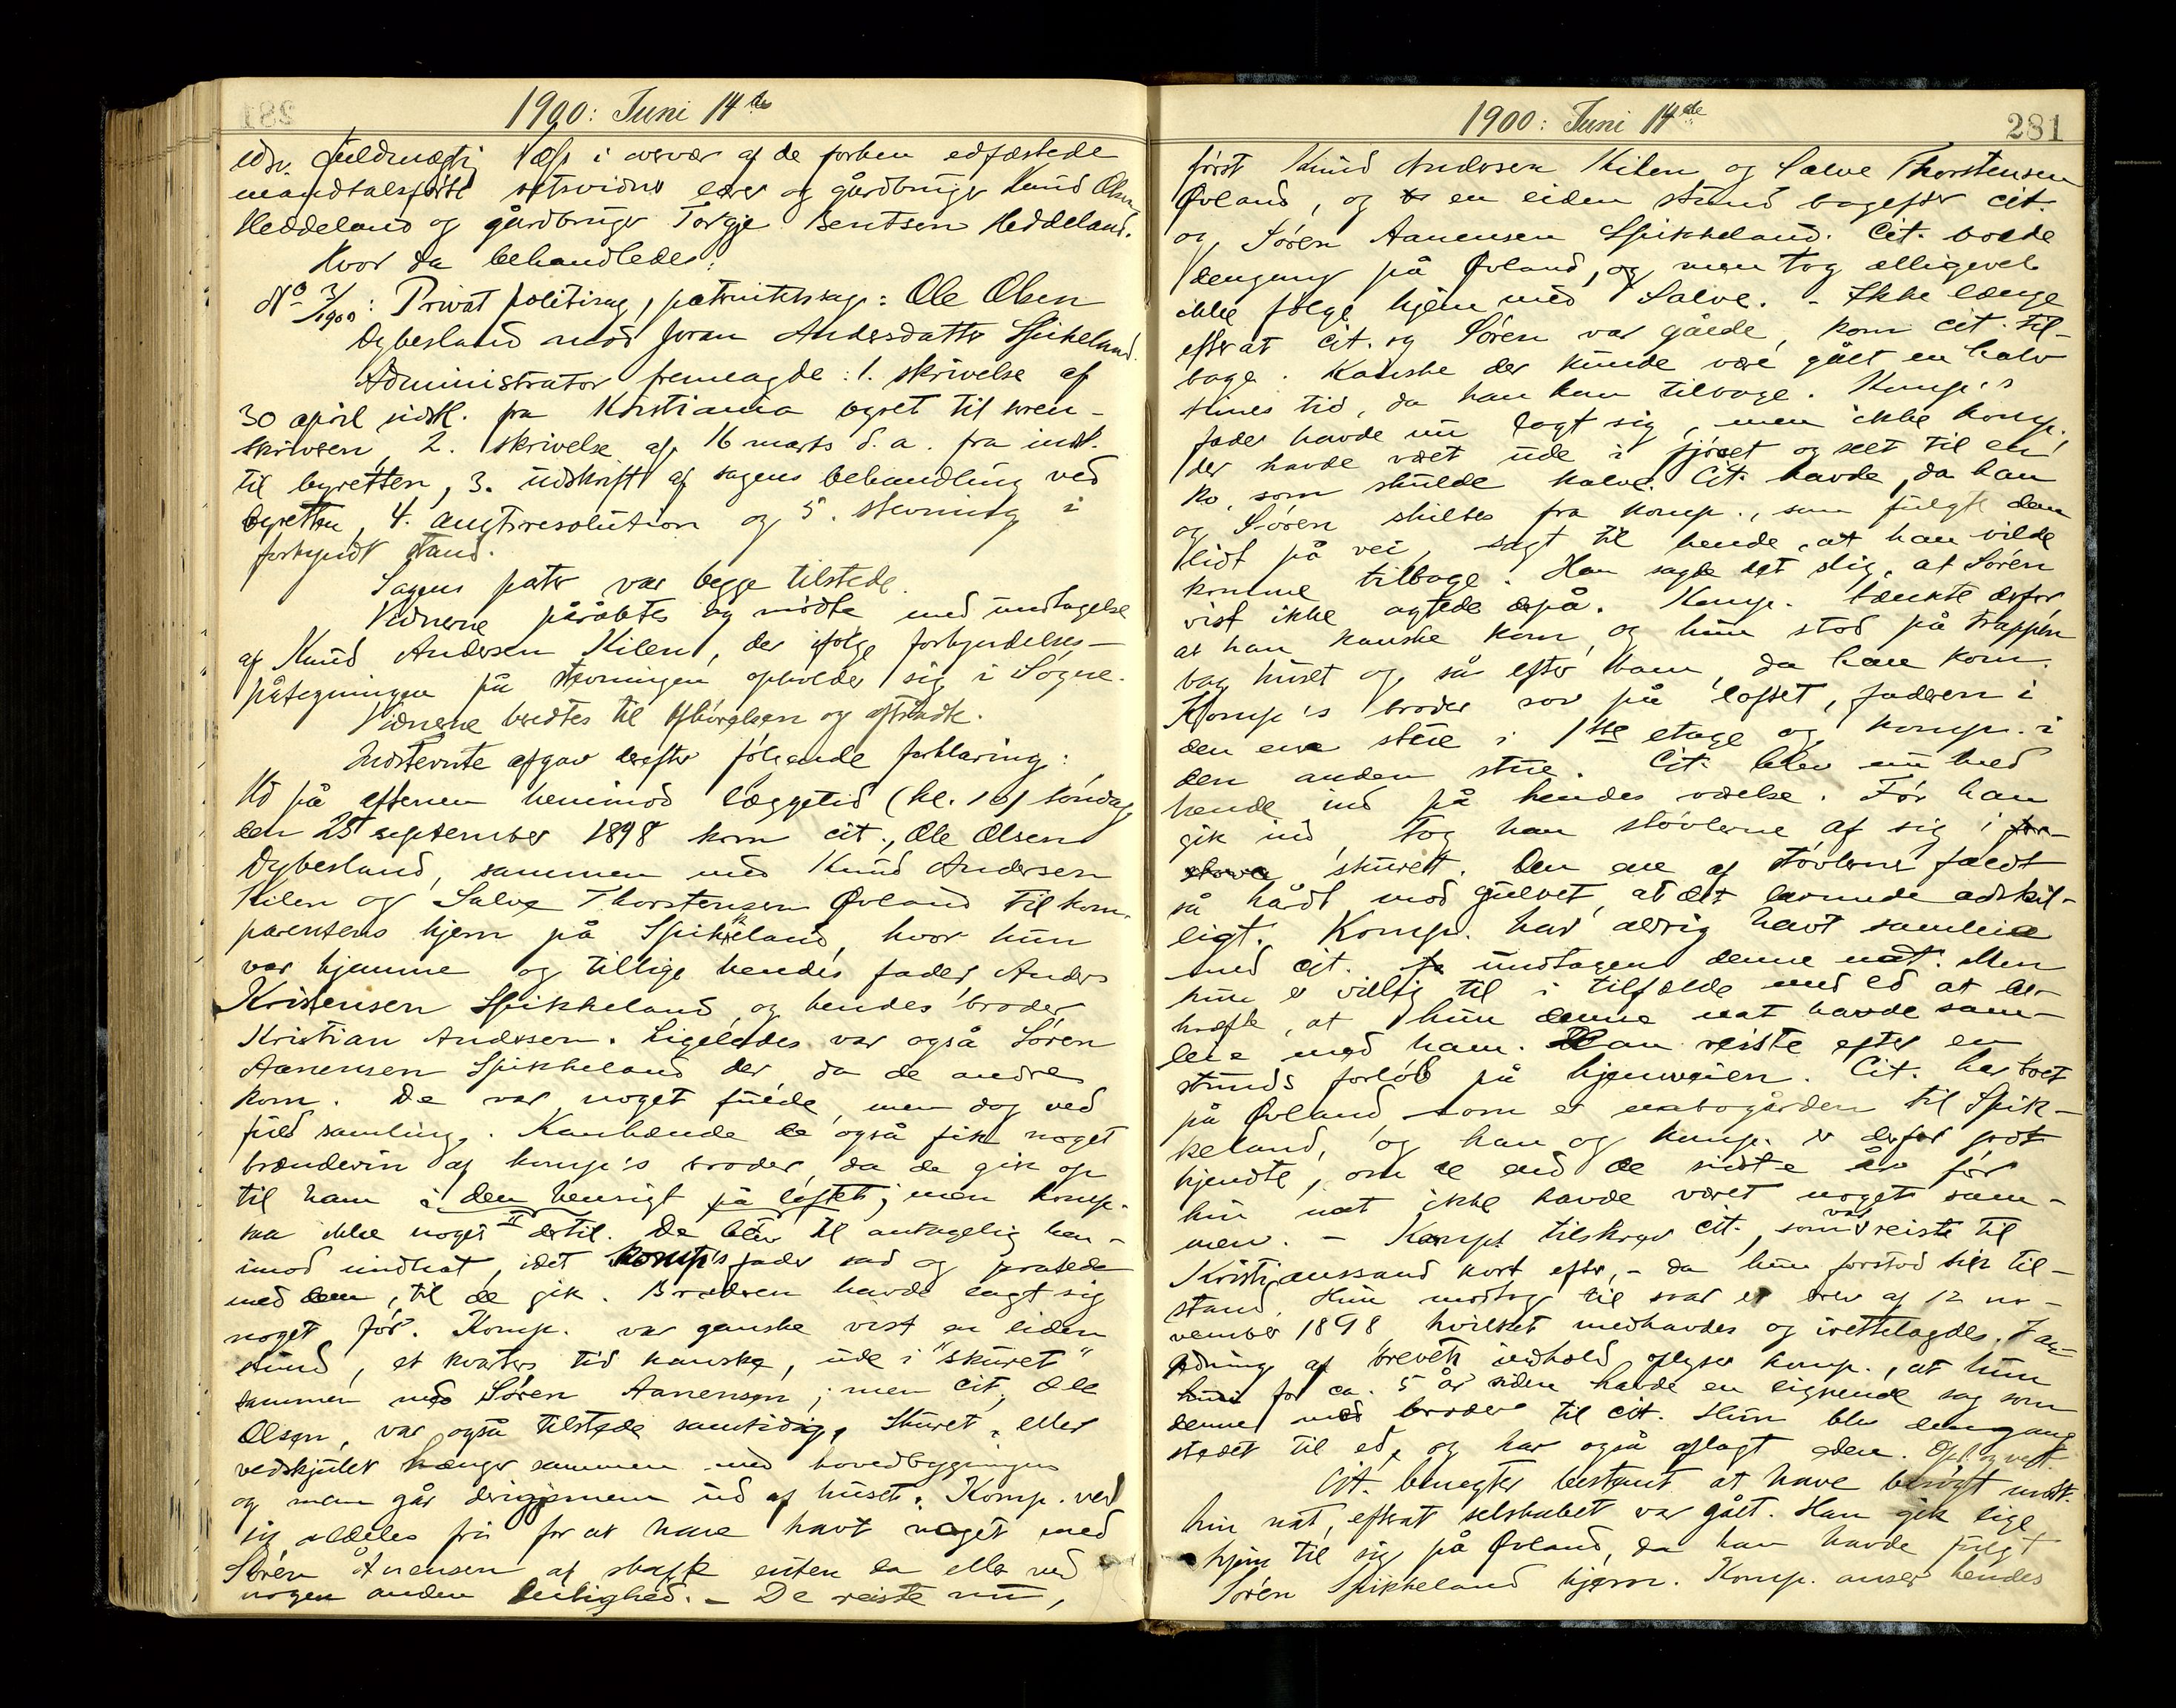 1900: Juni 14de
edsv. fuldmægtig i overvær af de forhen edfæstede
mandtalsførte retsvidner lærer og gårdbruger Knud Olsen
Heddeland og gårdbruger Torgje Bentsen Heddeland.
Hvor da behandledes:
No 3/1900: Privat politisag, paternitetssag: Ole Olsen
Dybesland mod Joran Andersdatter Spikeland.
Administrator fremlagde: 1. skrivelse af
30 april sidstl. fra Kristiania byret til soren-
skriveren, 2. skrivelse af 16 marts d. a. fra indst.
til byretten, 3. udskrift af sagens behandling ved
byretten, 4. amtsresolution og 5. stevning i
forkyndt stand.
Sagens parter var begge tilstede.
Vidnerne påråbtes og mødte med undtagelse
af Knud Andersen Kilen, der ifølge forkyndelses-
påtegningen på stevningen opholder sig i Søgne.
Vidnerne beredtes til afhørelsen og aftrådte.
Indstevnte afgav derefter følgende forklaring:
Ud på aftenen henimod læggetid (kl. 10) søndag
den 25 september 1898 kom cit., Ole Olsen
Dybesland, sammen med Knud Andersen
Kilen og Salve Thorstensen Øvland til kom-
parentens hjem på Spikkeland, hvor hun
var hjemme og tillige hendes fader, Anders
Kristensen Spikkeland og hendes broder
Kristian Andersen. Ligeledes var også Søren
Aanensen Spikkeland der, da de andre
kom. De var noget fulde, men dog ved
fuld samling. Kanhænde de også fik noget
brændevin af komp's broder, da de gik op
til ham i den hensigt på loftet; men komp.
saa ikke noget dertil. De blev til antagelig hen-
imod midnat, idet komp's fader sad og pratede
med dem, til de gik. Broderen havde lagt sig
noget før. Komp. var ganske vist en liden
stund, et kvarters tid kanske, ude i "skuret"
sammen med Søren Aanensen; men cit., Ole
Olsen, var også tilstede samtidig. Skuret, eller
vedskjulet hænger sammen med hovedbygningen
og man går derigjennem ud af huset. Komp. ved
sig aldeles fri for at have havt noget med
Søren Ånensen at skaffe enten da eller ved
nogen anden leilighed. – De reiste nu,
1900: Juni 14de
281
først Knud Andersen Kilen og Salve Thorstensen
Øvland, og en liden stund bagefter cit.
og Søren Aanensen Spikkeland. Cit. boede
dengang på Øvland, og men tog alligevel
ikke følge hjem med Salve. – Ikke længe
efterat cit. og Søren var gåede, kom cit. til-
bage. Kanske der kunde være gået en halv
times tid, da han kom tilbage. Komp's
fader havde nu lagt sig, men ikke komp.,
der havde været ude i fjøset og seet til en
ko, som skulde kalve. Cit. havde, da han
og Søren skiltes fra komp., som fulgte dem
lidt på vei, sagt til hende, at han vilde
komme tilbage. Han sagde det slig, at Søren
vist ikke agtede derpå. Komp. tænkte derfor,
at han kanske kom, og hun stod på trappen
bag huset og så efter ham, da han kom.
Komp's broder sov på loftet, faderen i
den ene stue i 1ste etage og komp. i
den anden stue. Cit. blev nu med
hende ind på hendes værelse. Før han
gik ind, tog han støvlerne af sig i
skuret. Den ene af støvlerne faldt
så hårdt mod gulvet, at det larmede adskil-
ligt. Komp. har aldrig havt samleie
med cit. undtagen denne nat. Men
hun er villig til i tilfælde med ed at be-
kræfte, at hun denne nat havde sam-
leie med ham. Han reiste efter en
stunds forløb på hjemveien. Cit. har boet
på Øvland som er nabogården til Spik-
keland, og han og komp. er derfor godt
kjendte, om de end de sidste år før
hin nat ikke havde været noget sam-
men. – Komp. tilskrev cit., som var reiste til
Kristianssand kort efter, – da hun forstod sin til-
stand. Hun modtog til svar et brev af 12 no-
vember 1898 hvilket medhavdes og irettelagdes. I an-
ledning af brevets indhold oplyser komp., at hun
for ca. 5 år siden havde en lignende sag som
denne med broder til cit. Hun blev dengang
stedet til ed, og har også aflagt eden. Opl. og vedt.
Cit. benegter bestemt at have besøgt indst.
hin nat, efterat selskabet var gået. Han gik lige
hjem til sig på Øvland, da han havde fulgt
Søren Spikkeland hjem. Komp. anser hendes